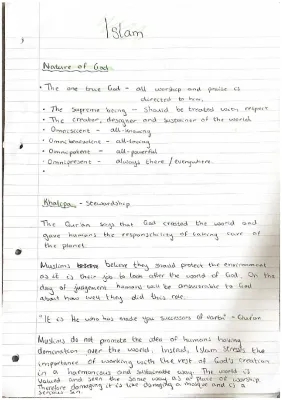 Islam
Nature of God
• The one true God - all worship and praise is
directed to him.
• The supreme being - should be treated with respect
• The creator, designer and sustainer of the world
• Omniscient - all-knowing
• Omnibenevolent - all-loving
• Omnipotent - all-powerful
• Omnipresent - always there / everywhere.
•
Khalifa - stewardship
The Qur'an says that God created the world and
gave humans the responsibility of taking care of
the planet.
Muslims believe they should protect the environment
as it is their job to look after the world of God. On the
day of judgement humans will be answerable to God
about how well they did this role.
"It is He who has made you successors of earth" - Quran
Muslims do not promote the idea of humans having
domination over the world. Instead, Islam stresses the
importance of working with the rest of God's creation
in a harmonious and sustainable way. The world is
valued and seen the same way as a place of worship
therefore damaging it is like damaging a mosque and is a
serious sin.